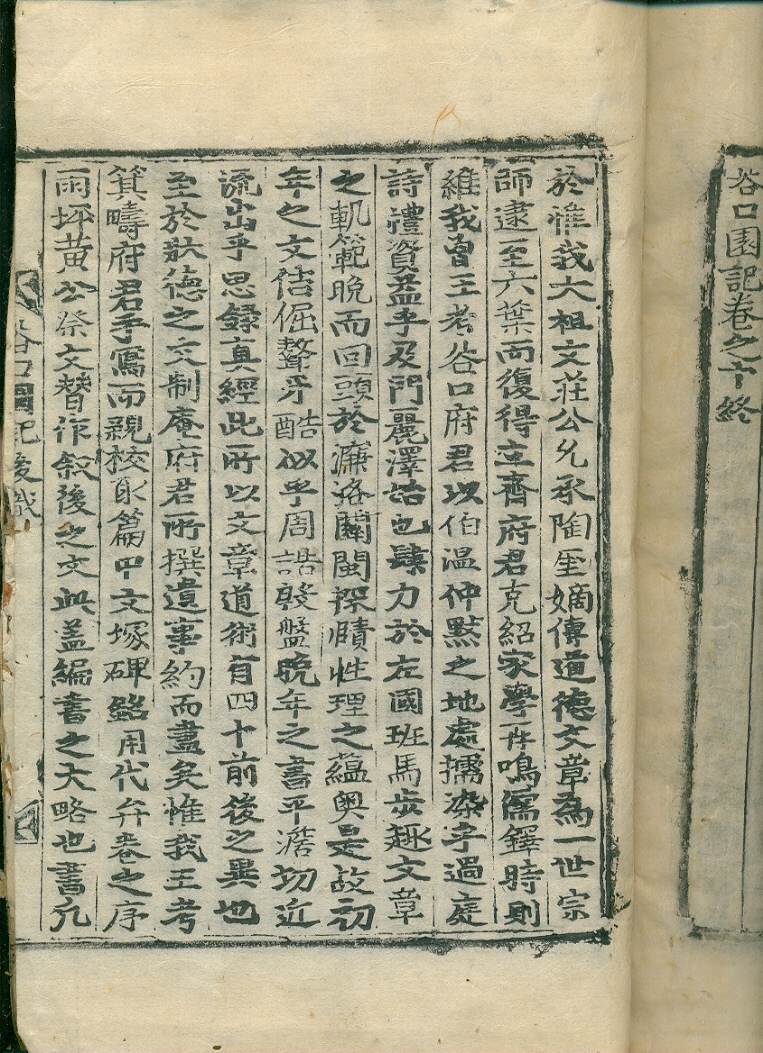 谷口園記卷之十終
於惟我大祖文莊公允承陶垕嫡傳道德文章為一世宗
師逮至六葉而復得立齋府君克紹家學存鳴儒鐸時則
維我曾王考谷口府君以伯溫仲默之地處擩染乎過庭
詩禮資益乎及門麗澤詰也肆力於左國班馬步趣文章
之軌範晩而回頭於濂洛關閩探賾性理之蘊奧是故初
年之文佶倔聱牙酷似乎周誥殷盤晩年之書平澹切近
流出乎思錄眞經此所以文章道術有四十前後之異也
至於狀德之文制庵府君所撰遺事約而盡矣惟我王考
箕疇府君手寫而親校取篇中文塚碑銘用代弁卷之序
雨坪黃公祭文替作敍後之文此蓋編書之大略也書凡
谷口園記後識